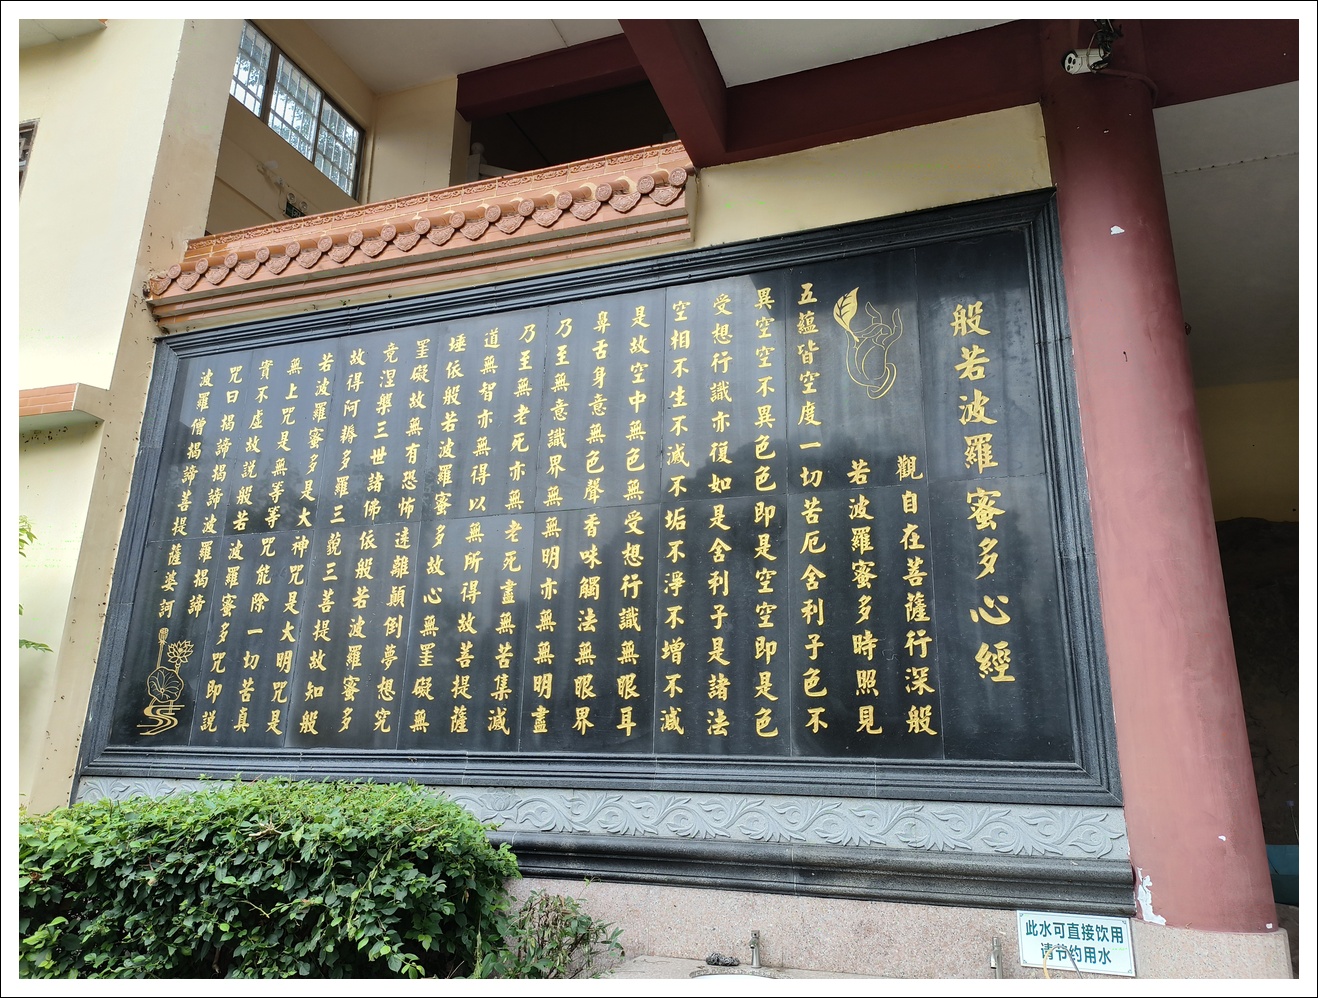 般若波羅蜜多心經
觀自在菩薩行深般
若波羅蜜多時照見
五蘊皆空度一切苦厄舍利子色不
異空空不異色色即是空空即是色
受想行識亦復如是舍利子是諸法
空相不生不滅不垢不淨不增不減
是故空中無色無受想行識無眼耳
鼻舌身意無色聲香味觸法無眼界
乃至無意識界無無明亦無無明盡
乃至無老死亦無老死盡無苦集滅
道無智亦無得以無所得故菩提薩
埵依般若波羅蜜多故心無罣礙無
罣礙故無有恐怖遠離顛倒夢想究
竟涅槃三世諸佛依般若波羅蜜多
故得阿耨多羅三藐三菩提故知般
若波羅蜜多是大神咒是大明咒是
無上咒是無等等咒能除一切苦真
實不虛故説般若波羅蜜多咒即説
咒曰揭諦揭諦波羅揭諦
波羅僧揭諦菩提薩婆訶
此水可直接饮用
请节约用水